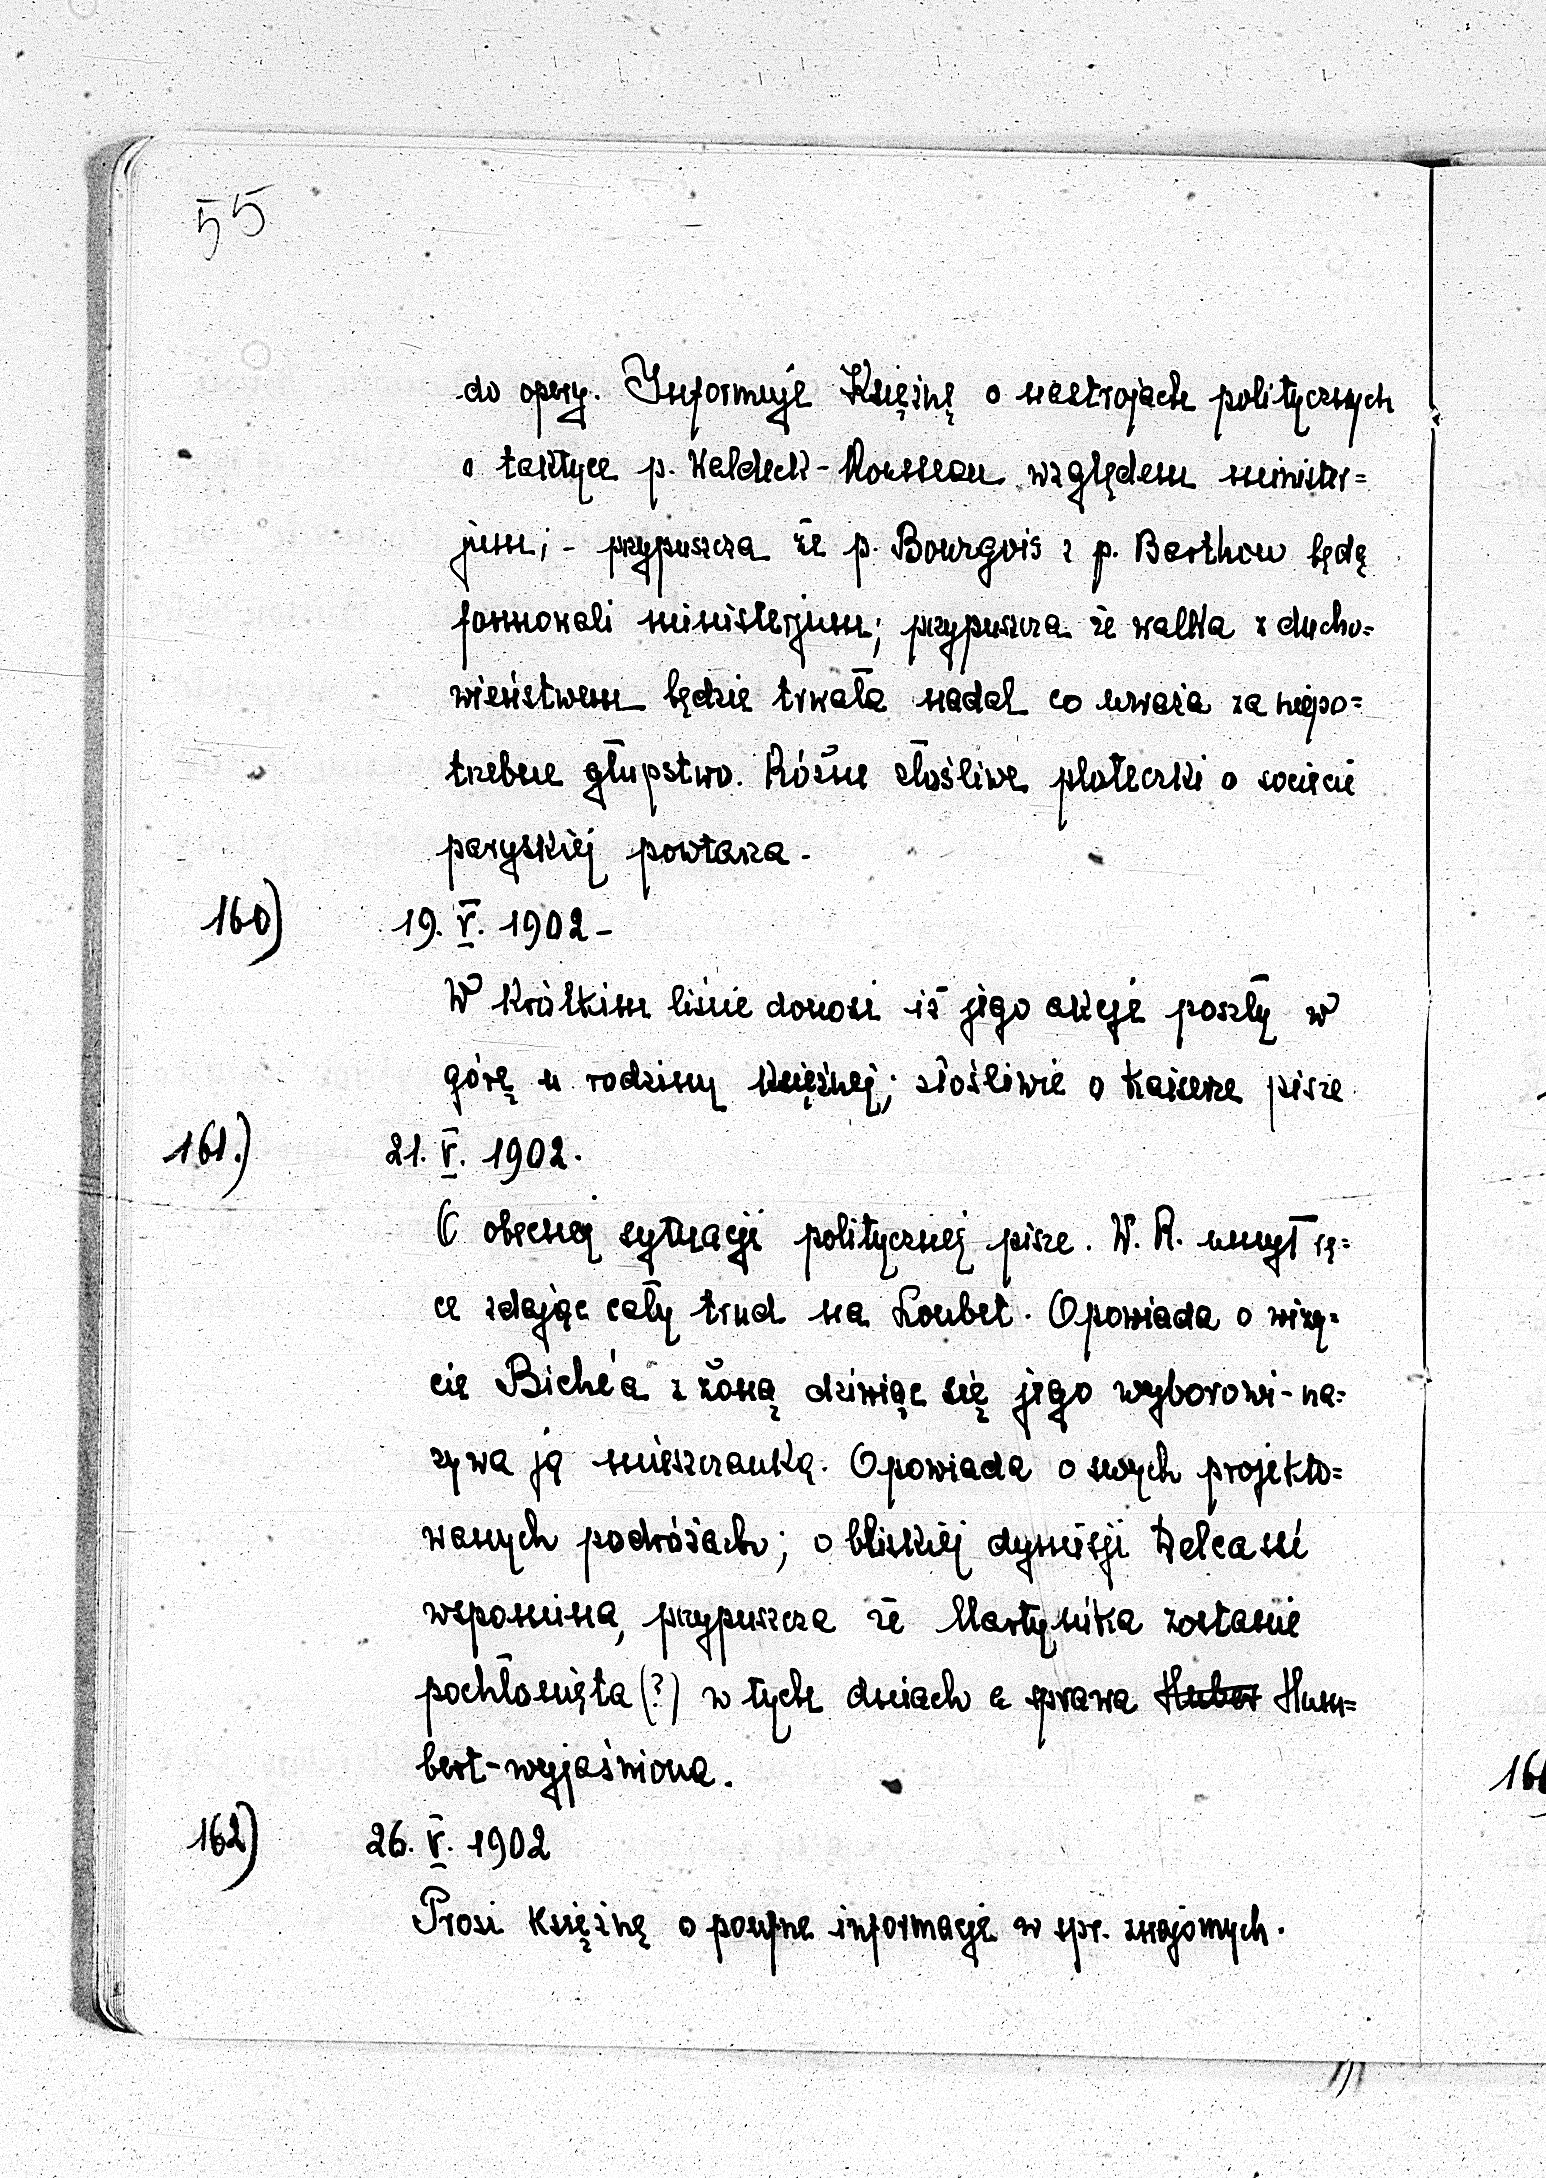 55
do opery. Informuje Księżnę o nastrojach politycznych
o taktyce p. Waldeck-Rousseau względem minister=
jum; - przypuszcza że p. Bourgois i p. Barthou będą
formowali ministerjum; przypuszcza że walka z ducho=
wieństwem będzie trwała nadal co uważa za niepo=
trzebne głupstwo. Różne złośliwe ploteczki o sociecie
paryskiej powtarza.
160) 19. V. 1902 -
W krótkim liście donosi iż jego akcje poszły w
górę u rodziny Księżnej; złośliwie o Kaiserze pisze
161.) 21. V. 1902.
O obecnej sytuacji politycznej pisze. W. R. umył rę=
ce zdając cały trud na Loubet. Opowiada o wizy=
cie Biché'a z żoną dziwiąc się jego wyborowi - na=
zywa ją mieszczanką. Opowiada o swych projekto=
wanych podróżach; o bliskiej dymisji Delcassé
wspomina, przypuszcza że Martynika zostanie
pochłonięta (?) w tych dniach a sprawa Huber Hum=
bert - wyjaśniona.
162) 26. V. 1902
Prosi Księżnę o poufne informacje w spr. znajomych.